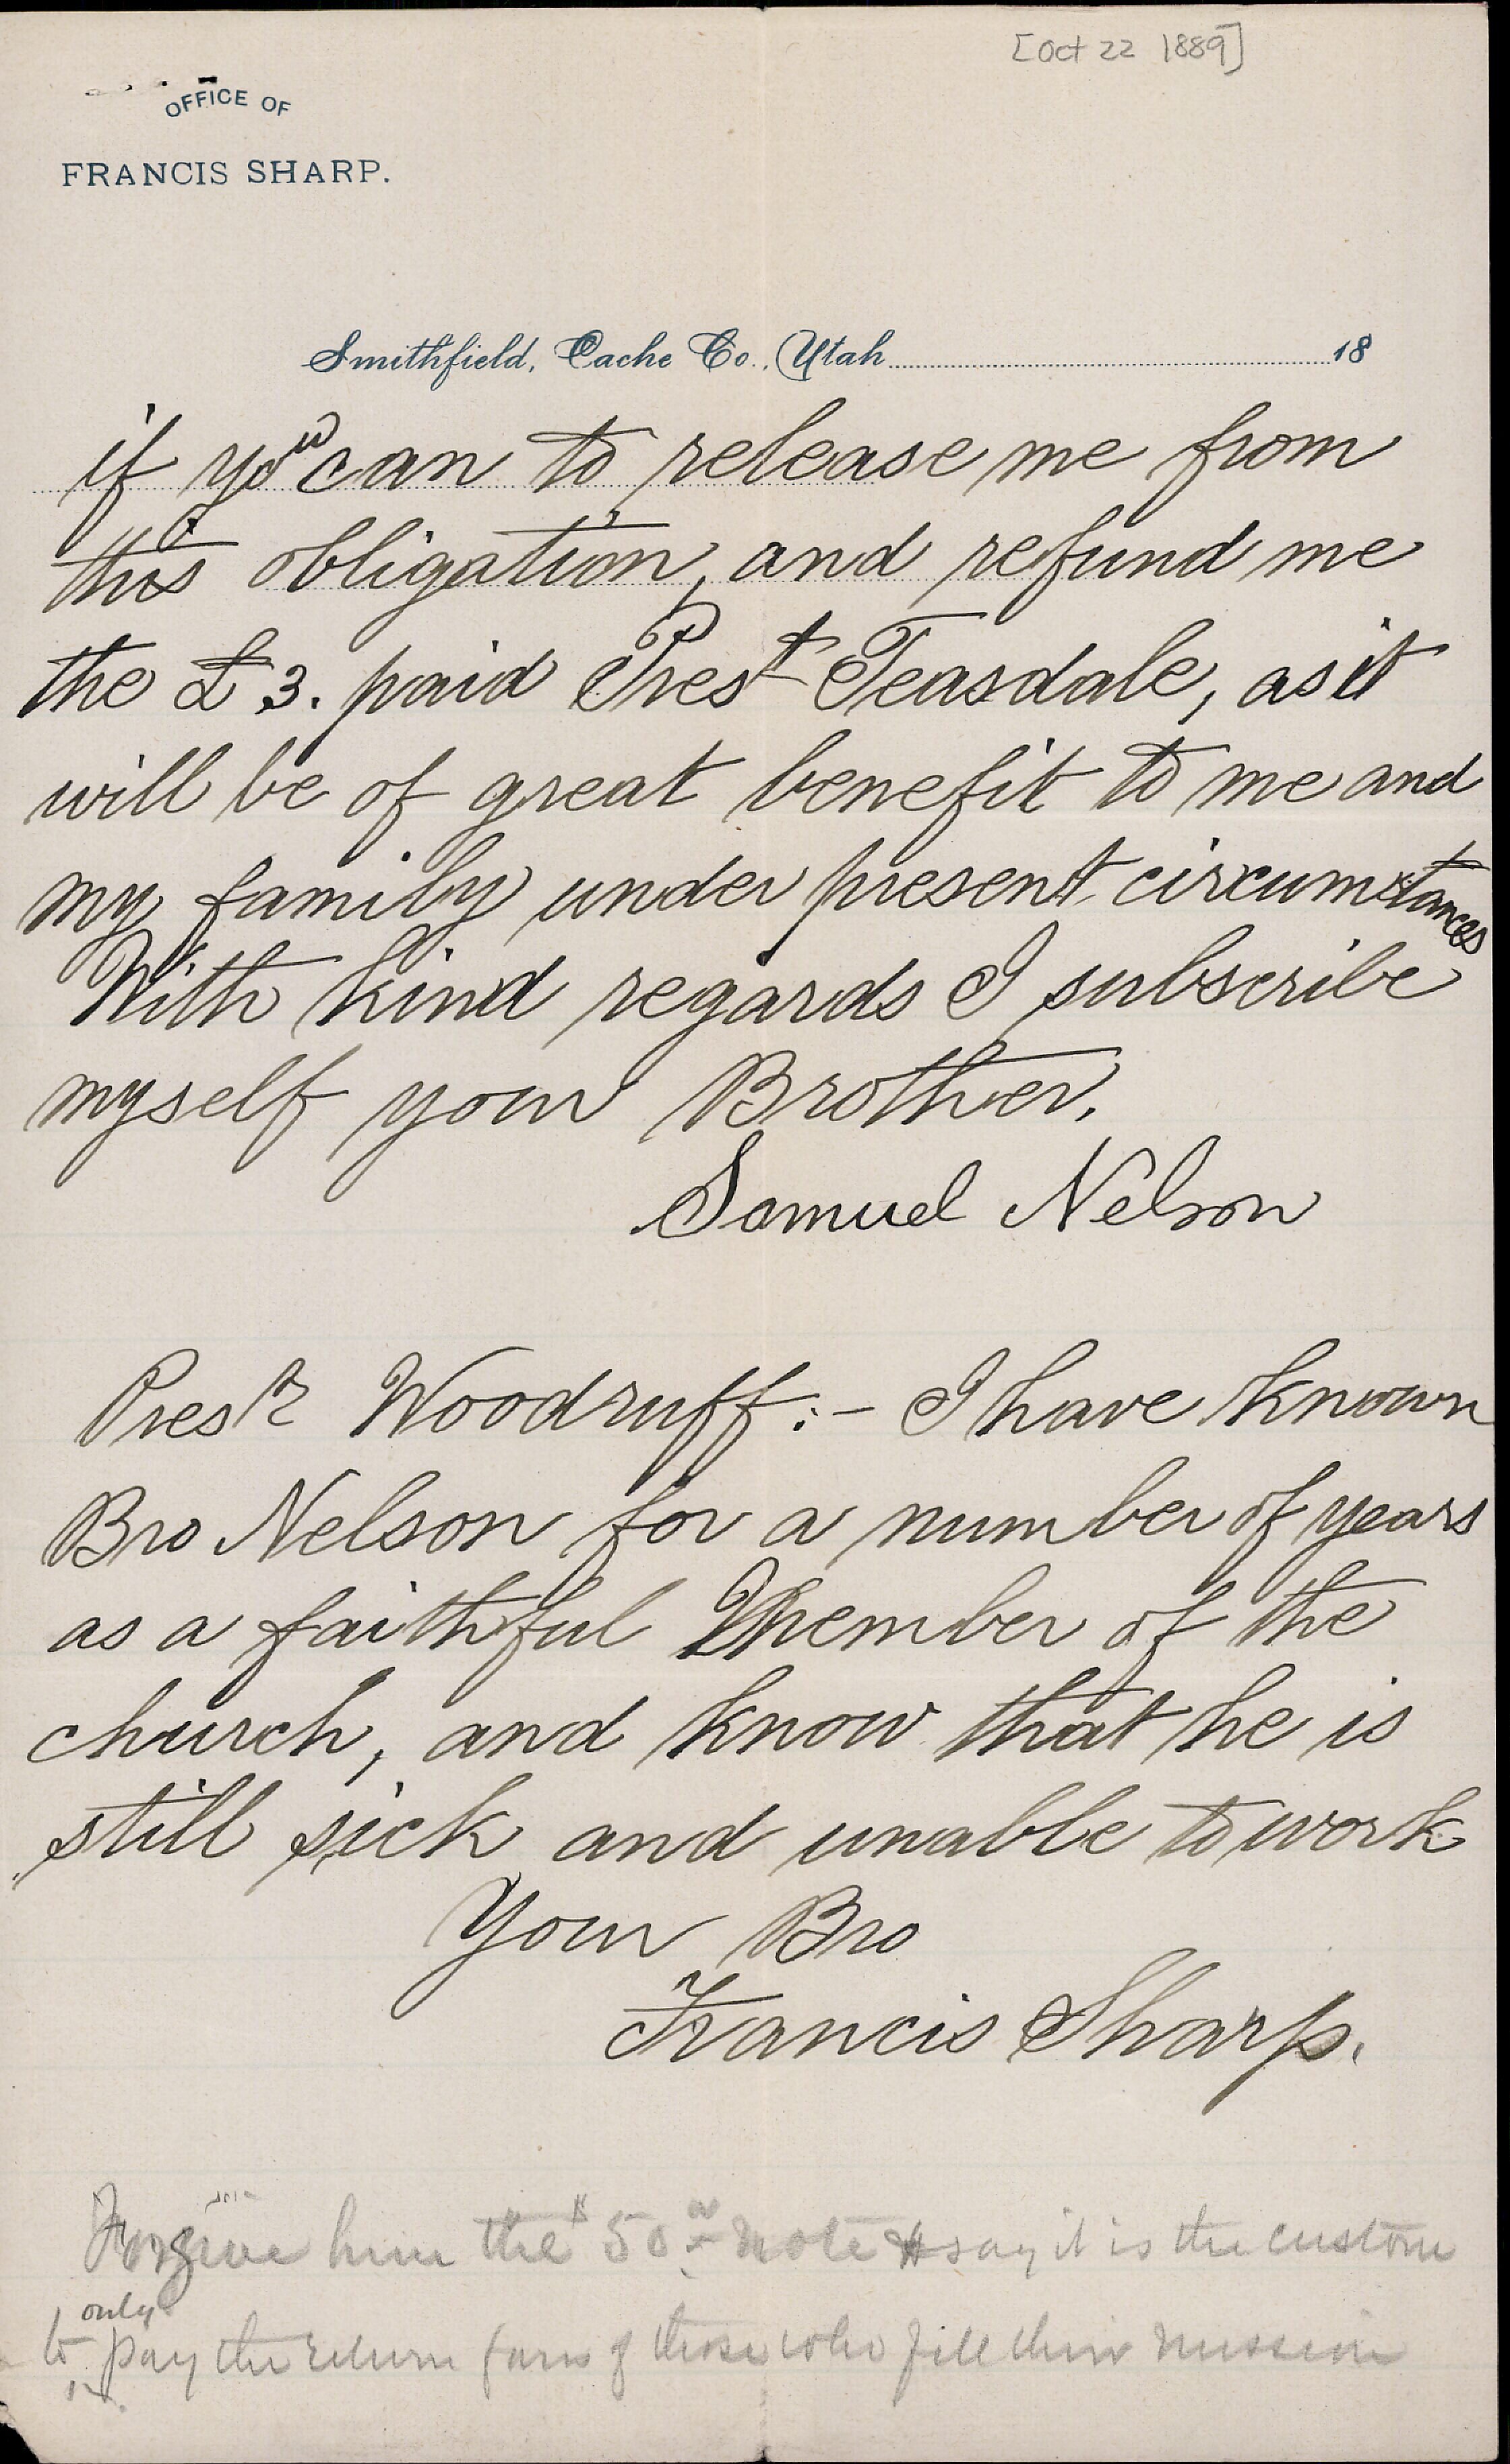 [Oct 22 1889]
OFFICE OF
FRANCIS SHARP.
Smithfield, Cache Co., Utah 18
if you can to release me from
this obligation, and refund me
the £3. paid Prest Teasdale, as it
will be of great benefit to me and
my family under present circumstances
With kind regards I subscribe
myself your Brother.
Samuel Nelson
Prest Woodruff:- I have known
Bro Nelson for a number of years
as a faithful Member of the
church, and know that he is
still sick and unable to work
Your Bro
Francis Sharp.
Forgive him the $50 note & say it is the custom
only
to pay the return fare of those who fill their mission